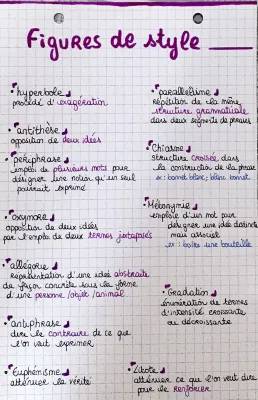 Figures de style
hyperbole
procédé d'exagération
antithèse
opposition de deux idées
périphrase
emploi de plusieurs mots pour
désigner une notion qu'un seul
pourrait exprimé
oxymore
opposition de deux idées
par l'emploi de deux termes juxtaposés
allégorie
représentation d'une idée abstraite
de façon concrète sous la forme
d'une personne/objet/animal
antiphrase
dire le contraire de ce que
l'on veut exprimer
Euphémisme
atténuer la vérité
parallélisme
répétition de la même
structure grammaticale
dans deux segments de phrases
Chiasme
structure croisée dans
la construction de la phrase
ex: bonnet blanc, blanc bonnet
Métonymie
emploie d'un mot pour
désigner une idée distincte
mais associé
ex: boire une bouteille
Gradation
énumération de termes
d'intensité croissante
ou décroissante
Litote
atténuer ce que l'on veut dire
pour le renforcer